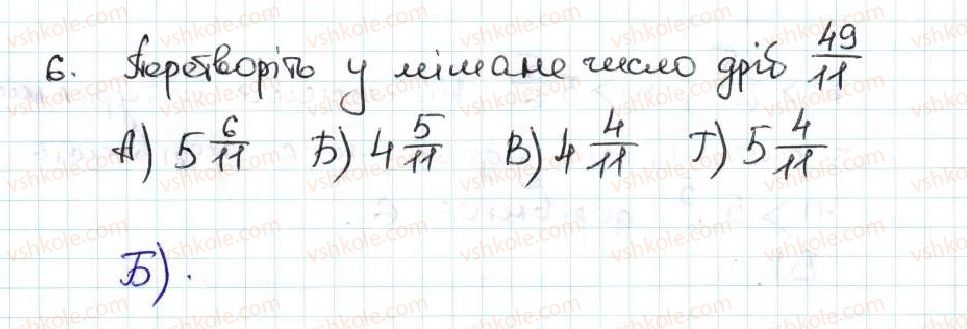 6. Перетворіть у мішане число дріб 49/11
А) 5 6/11 Б) 4 5/11 В) 4 4/11 Г) 5 4/11
Б).